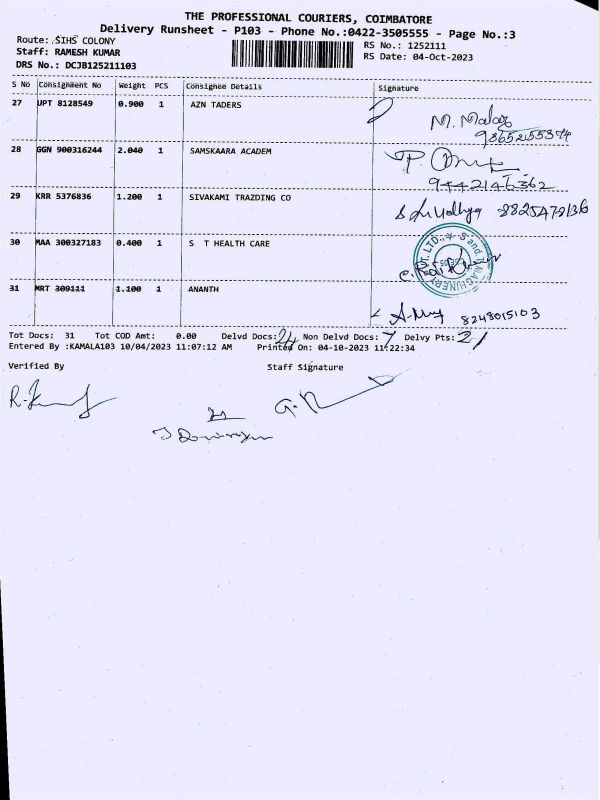 THE PROFESSIONAL COURIERS, COIMBATORE
Delivery Runsheet - P103 - Phone No.:0422-3505555 - Page No.:3
Route: SIHS COLONY
Staff: RAMESH KUMAR
DRS No.: DCJB125211103
RS No.: 1252111
RS Date: 04-Oct-2023
S No Consignment No Weight PCS Consignee Details Signature
27 UPT 8128549 0.900 1 AZN TADERS
28 GGN 900316244 2.040 1 SAMSKAARA ACADEM
9442146362
29 KRR 5376836 1.200 1 SIVAKAMI TRAZDING CO
30 MAA 300327183 0.400 1 S T HEALTH CARE
31 MRT 309111 1.100 1 ANANTH
8248015103
Tot Docs: 31 Tot COD Amt: 0.00 Delvd Docs: 24 Non Delvd Docs: 7 Delvy Pts: 21
Entered By :KAMALA103 10/04/2023 11:07:12 AM Printed On: 04-10-2023 11:22:34
Verified By Staff Signature